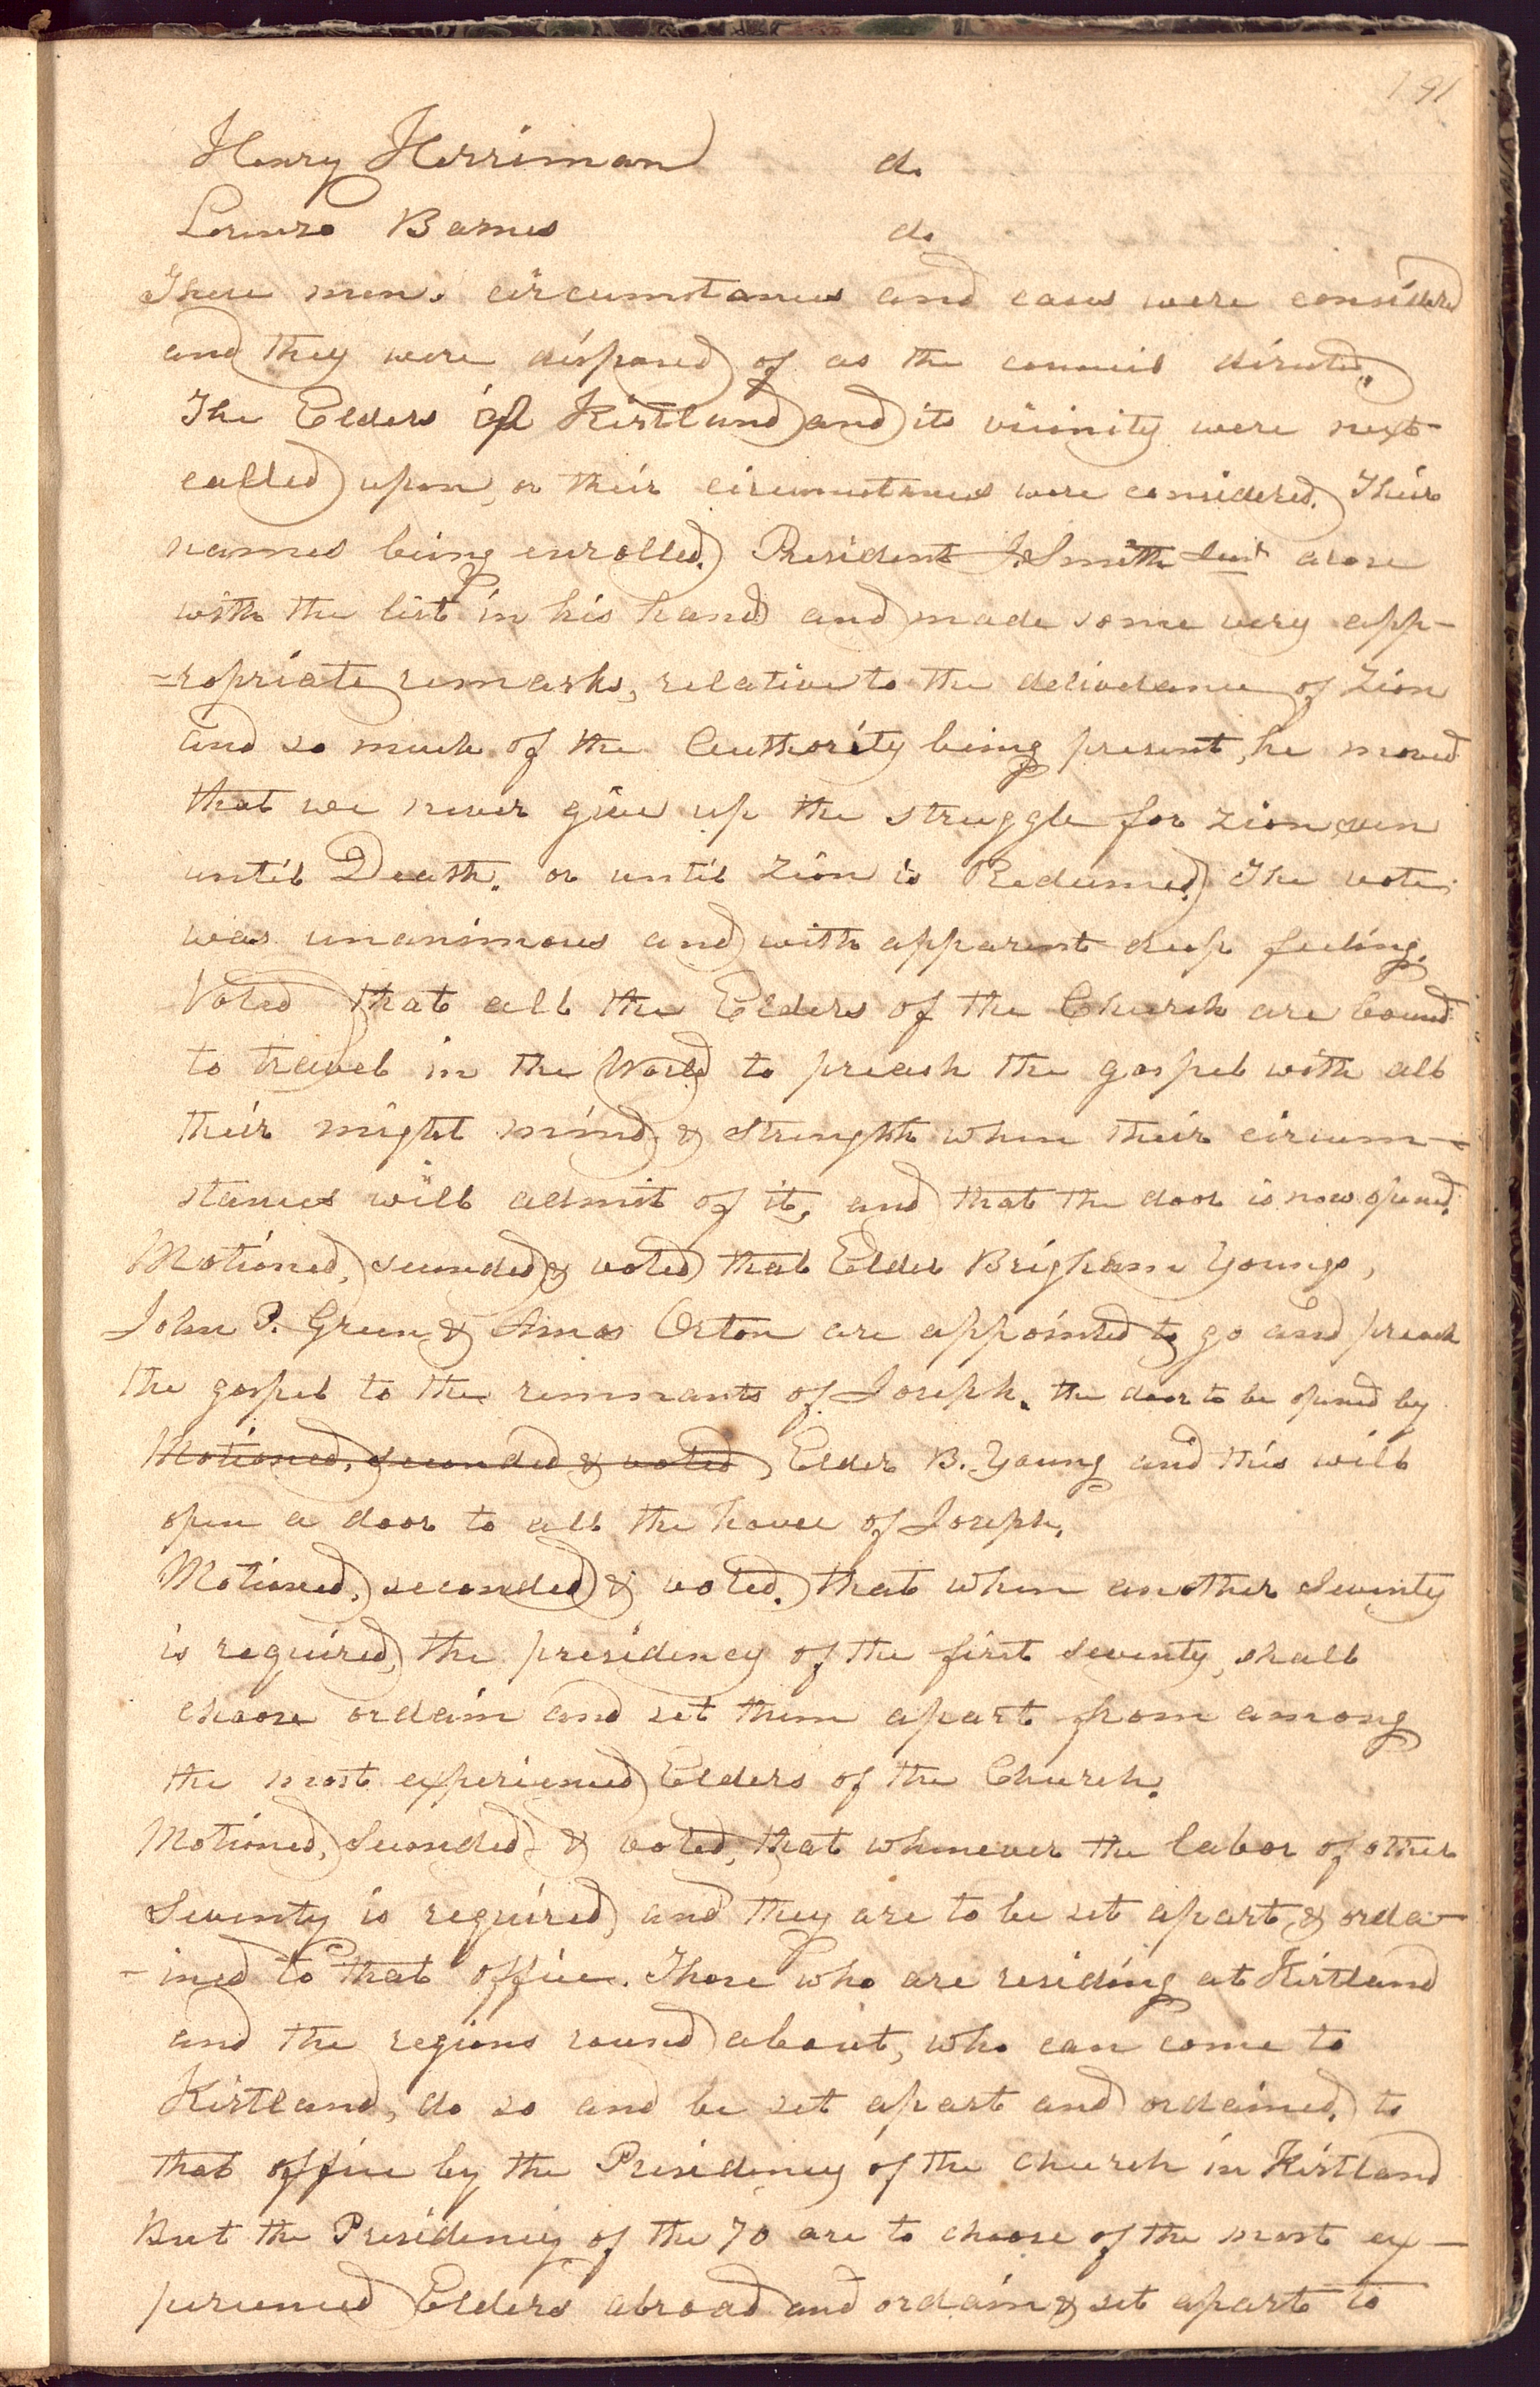 191
Henry Herriman do
Lorenzo Barnes do
These men's circumstances and cases were considered
and they were disposed of as the council directed.
The Elders of Kirtland and its vicinity were next
called upon, or their circumstances were considered. Their
names being enrolled. President J. Smith Jun^r arose
with the list in his hand and made some very app-
=ropriate remarks, relative to the deliverance of Zion
and so much of the Authority being present, he moved
that we never give up the struggle for Zion, even
until Death. or until Zion is Redeemed. The vote
was unanimous and with apparent deep feeling.
Voted that all the Elders of the Church are bound
to travel in the World to preach the gospel with all
their might mind & strength when their circum-
stances will admit of it, and that the door is now opened.
Motioned, seconded & voted that Elder Brigham Young,
John P. Green & Amos Orton are appointed to go and preach
the gospel to the remnants of Joseph. the door to be opened by
Motioned, seconded & voted, Elder B. Young and this will
open a door to all the house of Joseph.
Motioned, seconded & voted. that when another Seventy
is required, the presidency of the first seventy, shall
choose ordain and set them apart from among
the most experienced Elders of the Church.
Motioned, Seconded & voted, that whenever the labor of other
Seventy is required, and they are to be set apart, & orda-
-ined to that office. Those who are residing at Kirtland
and the regions round about, who can come to
Kirtland, do so and be set apart and ordained, to
that office by the Presidency of the church in Kirtland
But the Presidency of the 70 are to choose of the most ex-
perienced Elders abroad and ordain & set apart to